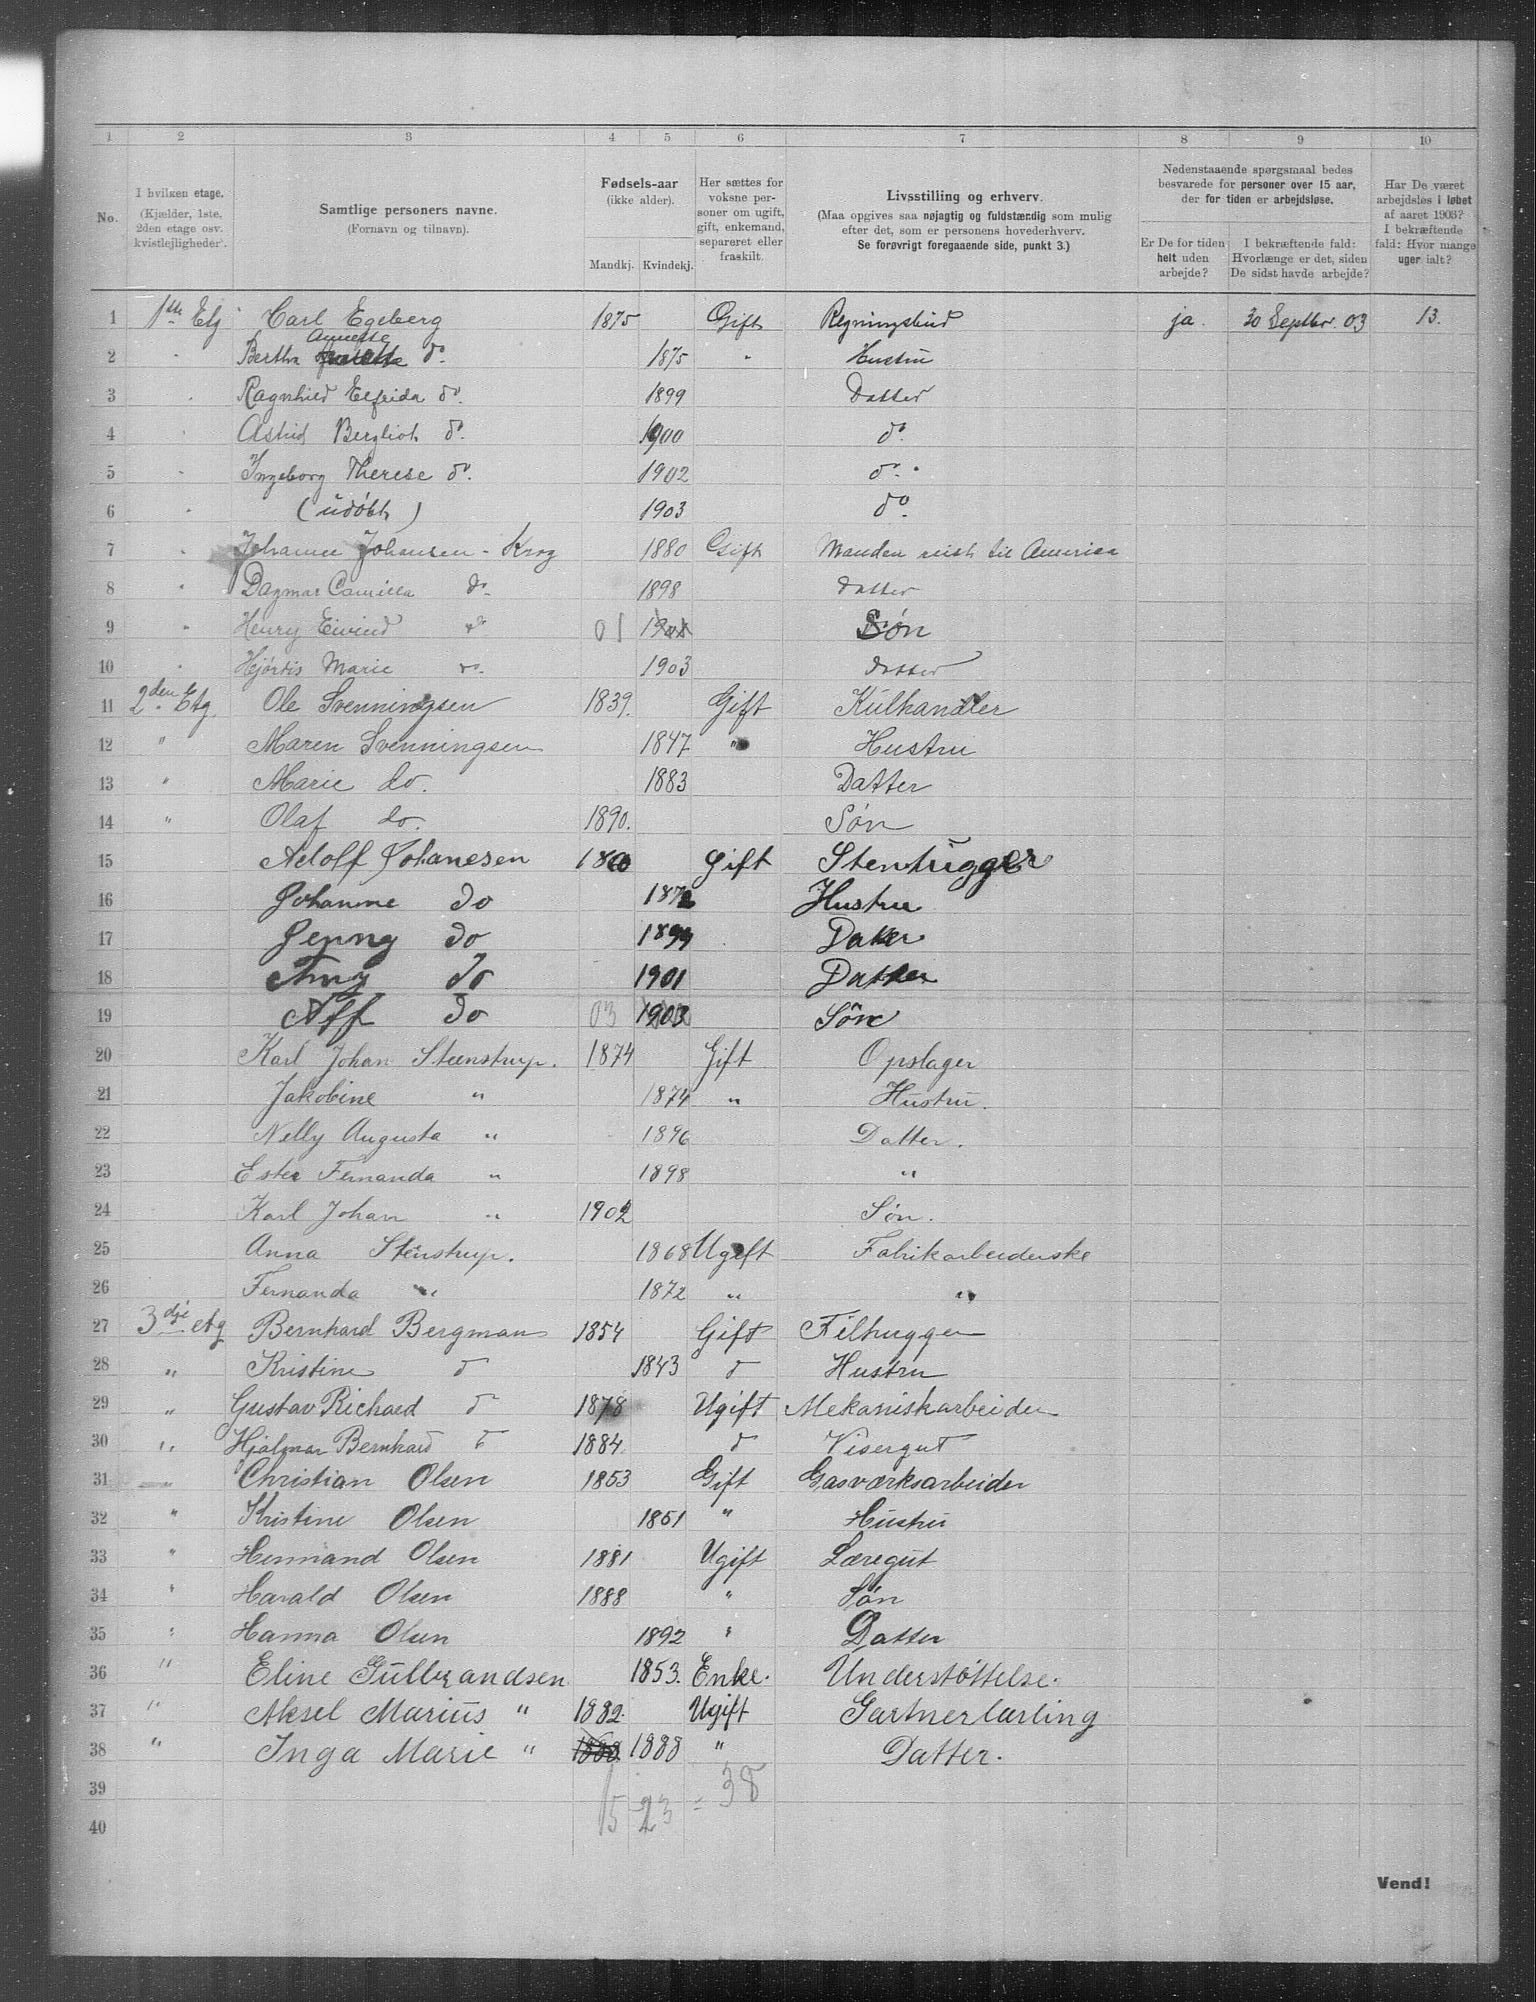 1 2 3 4 5 6 7 8 9 10
No.
I hvilken etage.
(Kjælder, 1ste,
2den etage osv.
kvistlejligheder).
Samtlige personers navne.
(Fornavn og tilnavn).
Fødsels-aar
(ikke alder).
Mandkj. Kvindekj.
Her sættes for
voksne per-
soner om ugift,
gift, enkemand,
separeret eller
fraskilt.
Livsstilling og erhverv.
(Maa opgives saa nøjagtig og fuldstændig som mulig
efter det, som er personens hovederhverv.
Se forøvrigt foregaaende side, punkt 3.)
Nedenstaaende spørgsmaal bedes
besvarede for personer over 15 aar,
der for tiden er arbejdsløse.
Er De for tiden
helt uden
arbejde?
I bekræftende fald:
Hvorlænge er det, siden
De sidst havde arbejde?
Har De været
arbejdsløs i løbet
af aaret 1903?
I bekræftende
fald: Hvor mange
uger ialt?
1 1ste Etg Carl Egeberg 1875 Gift Regningsbud ja. 30 Septbr. 03 13.
Annette
2 " Bertha do. 1875 " Hustru
3 " Ragnhild Elfrida do. 1899 Datter
4 " Astrid Bergliot do. 1900 do.
5 " Ingeborg Therese do. 1902 do. "
6 " (udøbt) 1903 do.
7 " Johanne Johansen - Krog 1880 Gift Manden reist til America
8 " Dagmar Camilla do. 1898 Datter
9 " Henry Eivind do 01 Søn
10 " Hjørdis Marie do. 1903 Datter
11 2den Etg. Ole Svenningsen 1839. Gift Kulhandler
12 " Maren Svenningsen 1847 " Hustru
13 " Marie do. 1883 Datter
14 " Olaf do. 1890. Søn
15 Adolf Johanesen Gift Stenhugger
16 Johanne do 1872 Hustru
17 Jenny do 1899 Datter
18 do 1901 Datter
19 Alf do 03 1903 Søn
20 Karl Johan Steenstrup. 1874 Gift Opslager
21 Jakobine " 1874 " Hustru.
22 Nelly Augusta " 1896 Datter.
23 Ester Fernanda " 1898 "
24 Karl Johan " 1902 Søn.
25 Anna Stenstrup. 1868 Ugift Fabrikarbeiderske
26 Fernanda " 1872 " "
27 3dje etg Bernhard Bergman 1854 Gift Filhugger
28 " Kristine d 1843 d Hustru
29 " Gustav Richard d 1878 Ugift Mekaniskarbeider
30 " Hjalmar Bernhard d 1884 d Visergut
31 " Christian Olsen 1853 Gift Gasværksarbeider
32 " Kristine Olsen 1851 " Hustru
33 " Hermand Olsen 1881 Ugift Læregut
34 " Harald Olsen 1888 " Søn
35 " Hanna Olsen 1892 " Datter
36 " Eline Gulbrandsen 1853. Enke. Understøttelse.
37 " Aksel Marius " 1882. Ugift Gartnerlærling
38 " Inga Marie " 1888 1888 " Datter.
39
15 23 = 38
40
Vend!